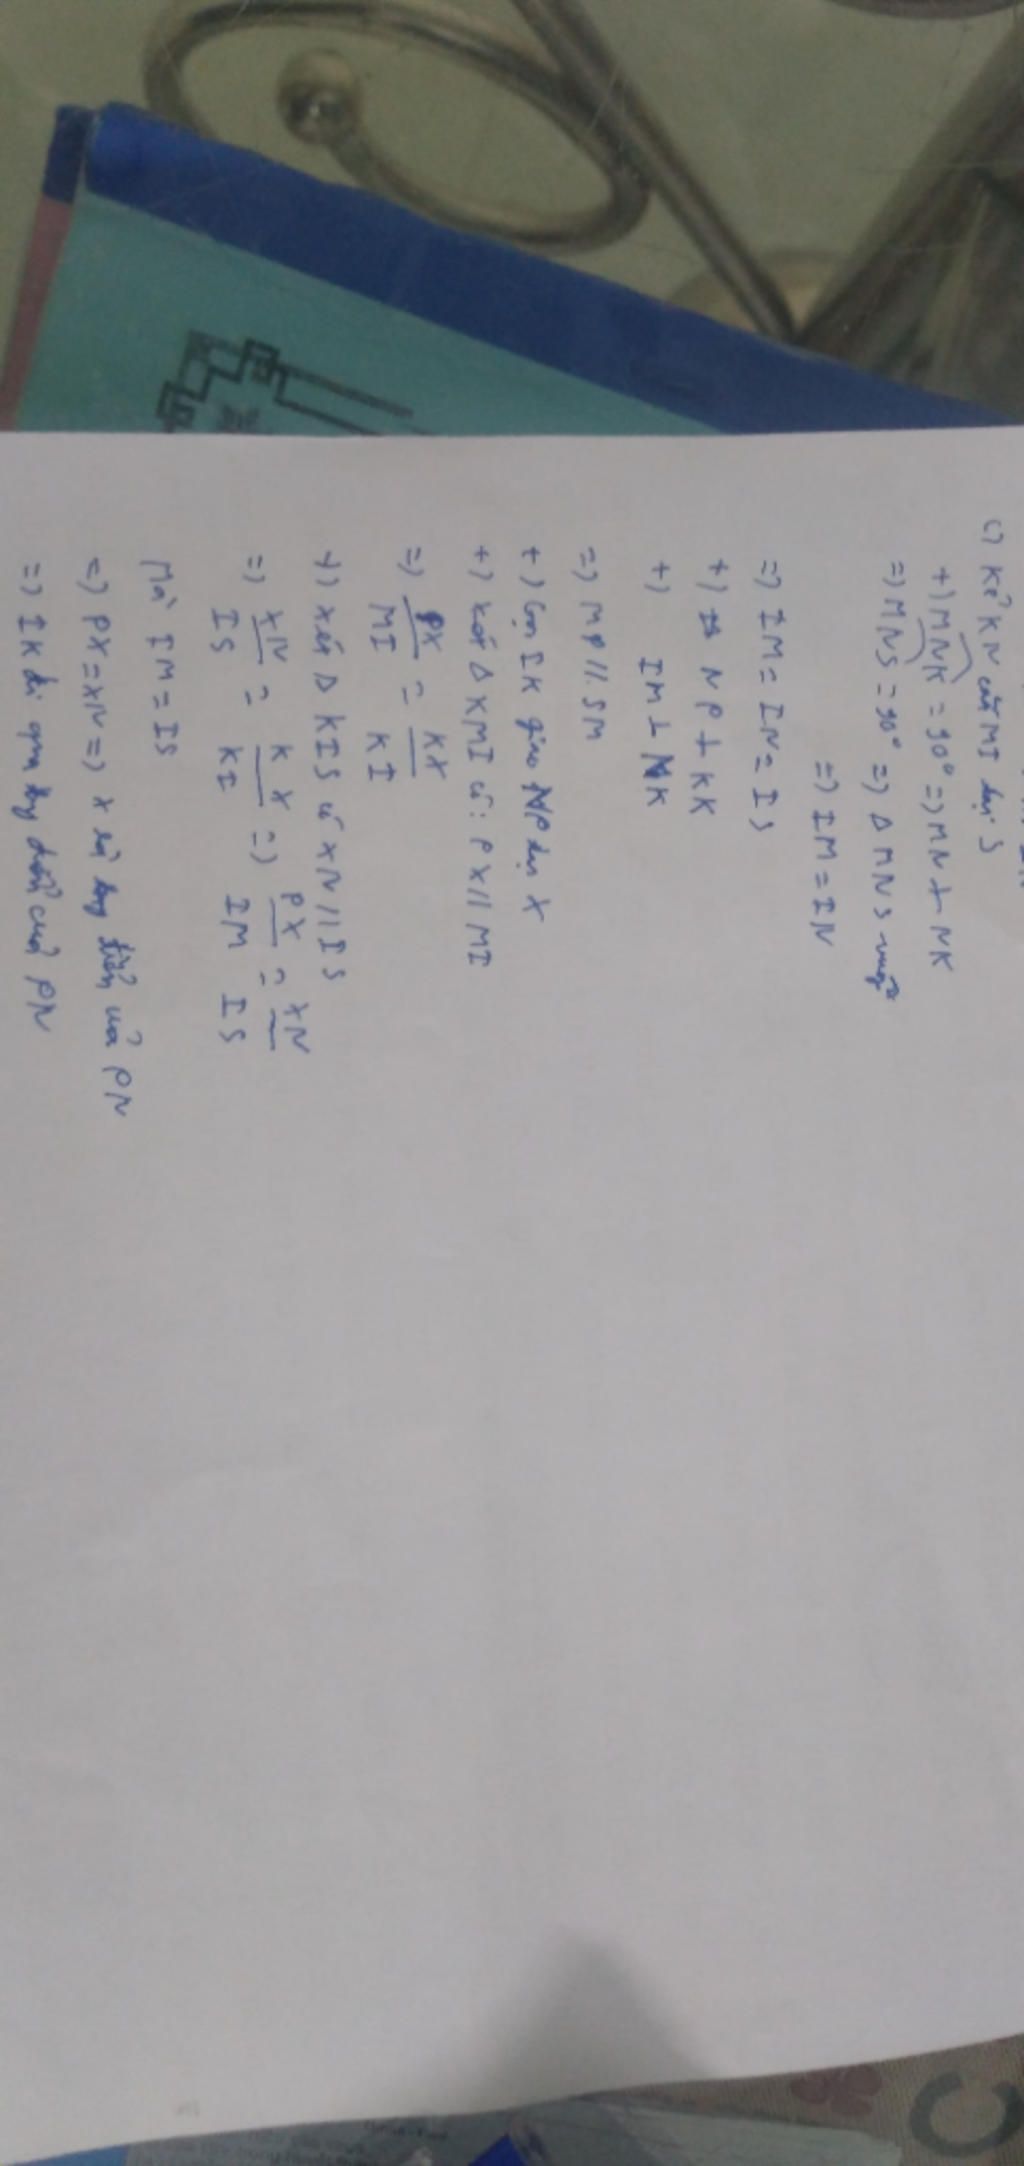 c) Kẻ KN cắt MI tại S
+) MNK = 90° => MN ⊥ NK
=> MNS = 90° => Δ MNS vuông
=> IM = IN
=> IM = IN = IS
+) NP ⊥ KK
+) IM ⊥ MK
=> NP // SM
+) Gọi IK giao NP tại X
+) Xét Δ KMI có: PX // MI
=> PX/MI = KX/KI
+) Xét Δ KIS có XN // IS
=> XN/IS = KX/KI => PX/IM = XN/IS
Mà IM = IS
=> PX = XN => X là trung điểm của PN
=> IK đi qua trung điểm của PN